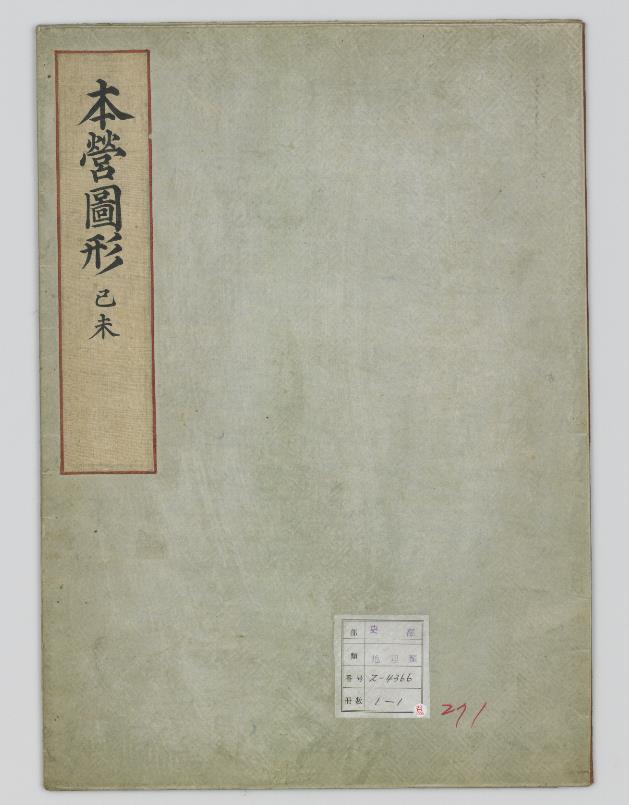 本營圖形 己未
部 史部
類 地理類
番号 2-4366
冊数 1-1
291